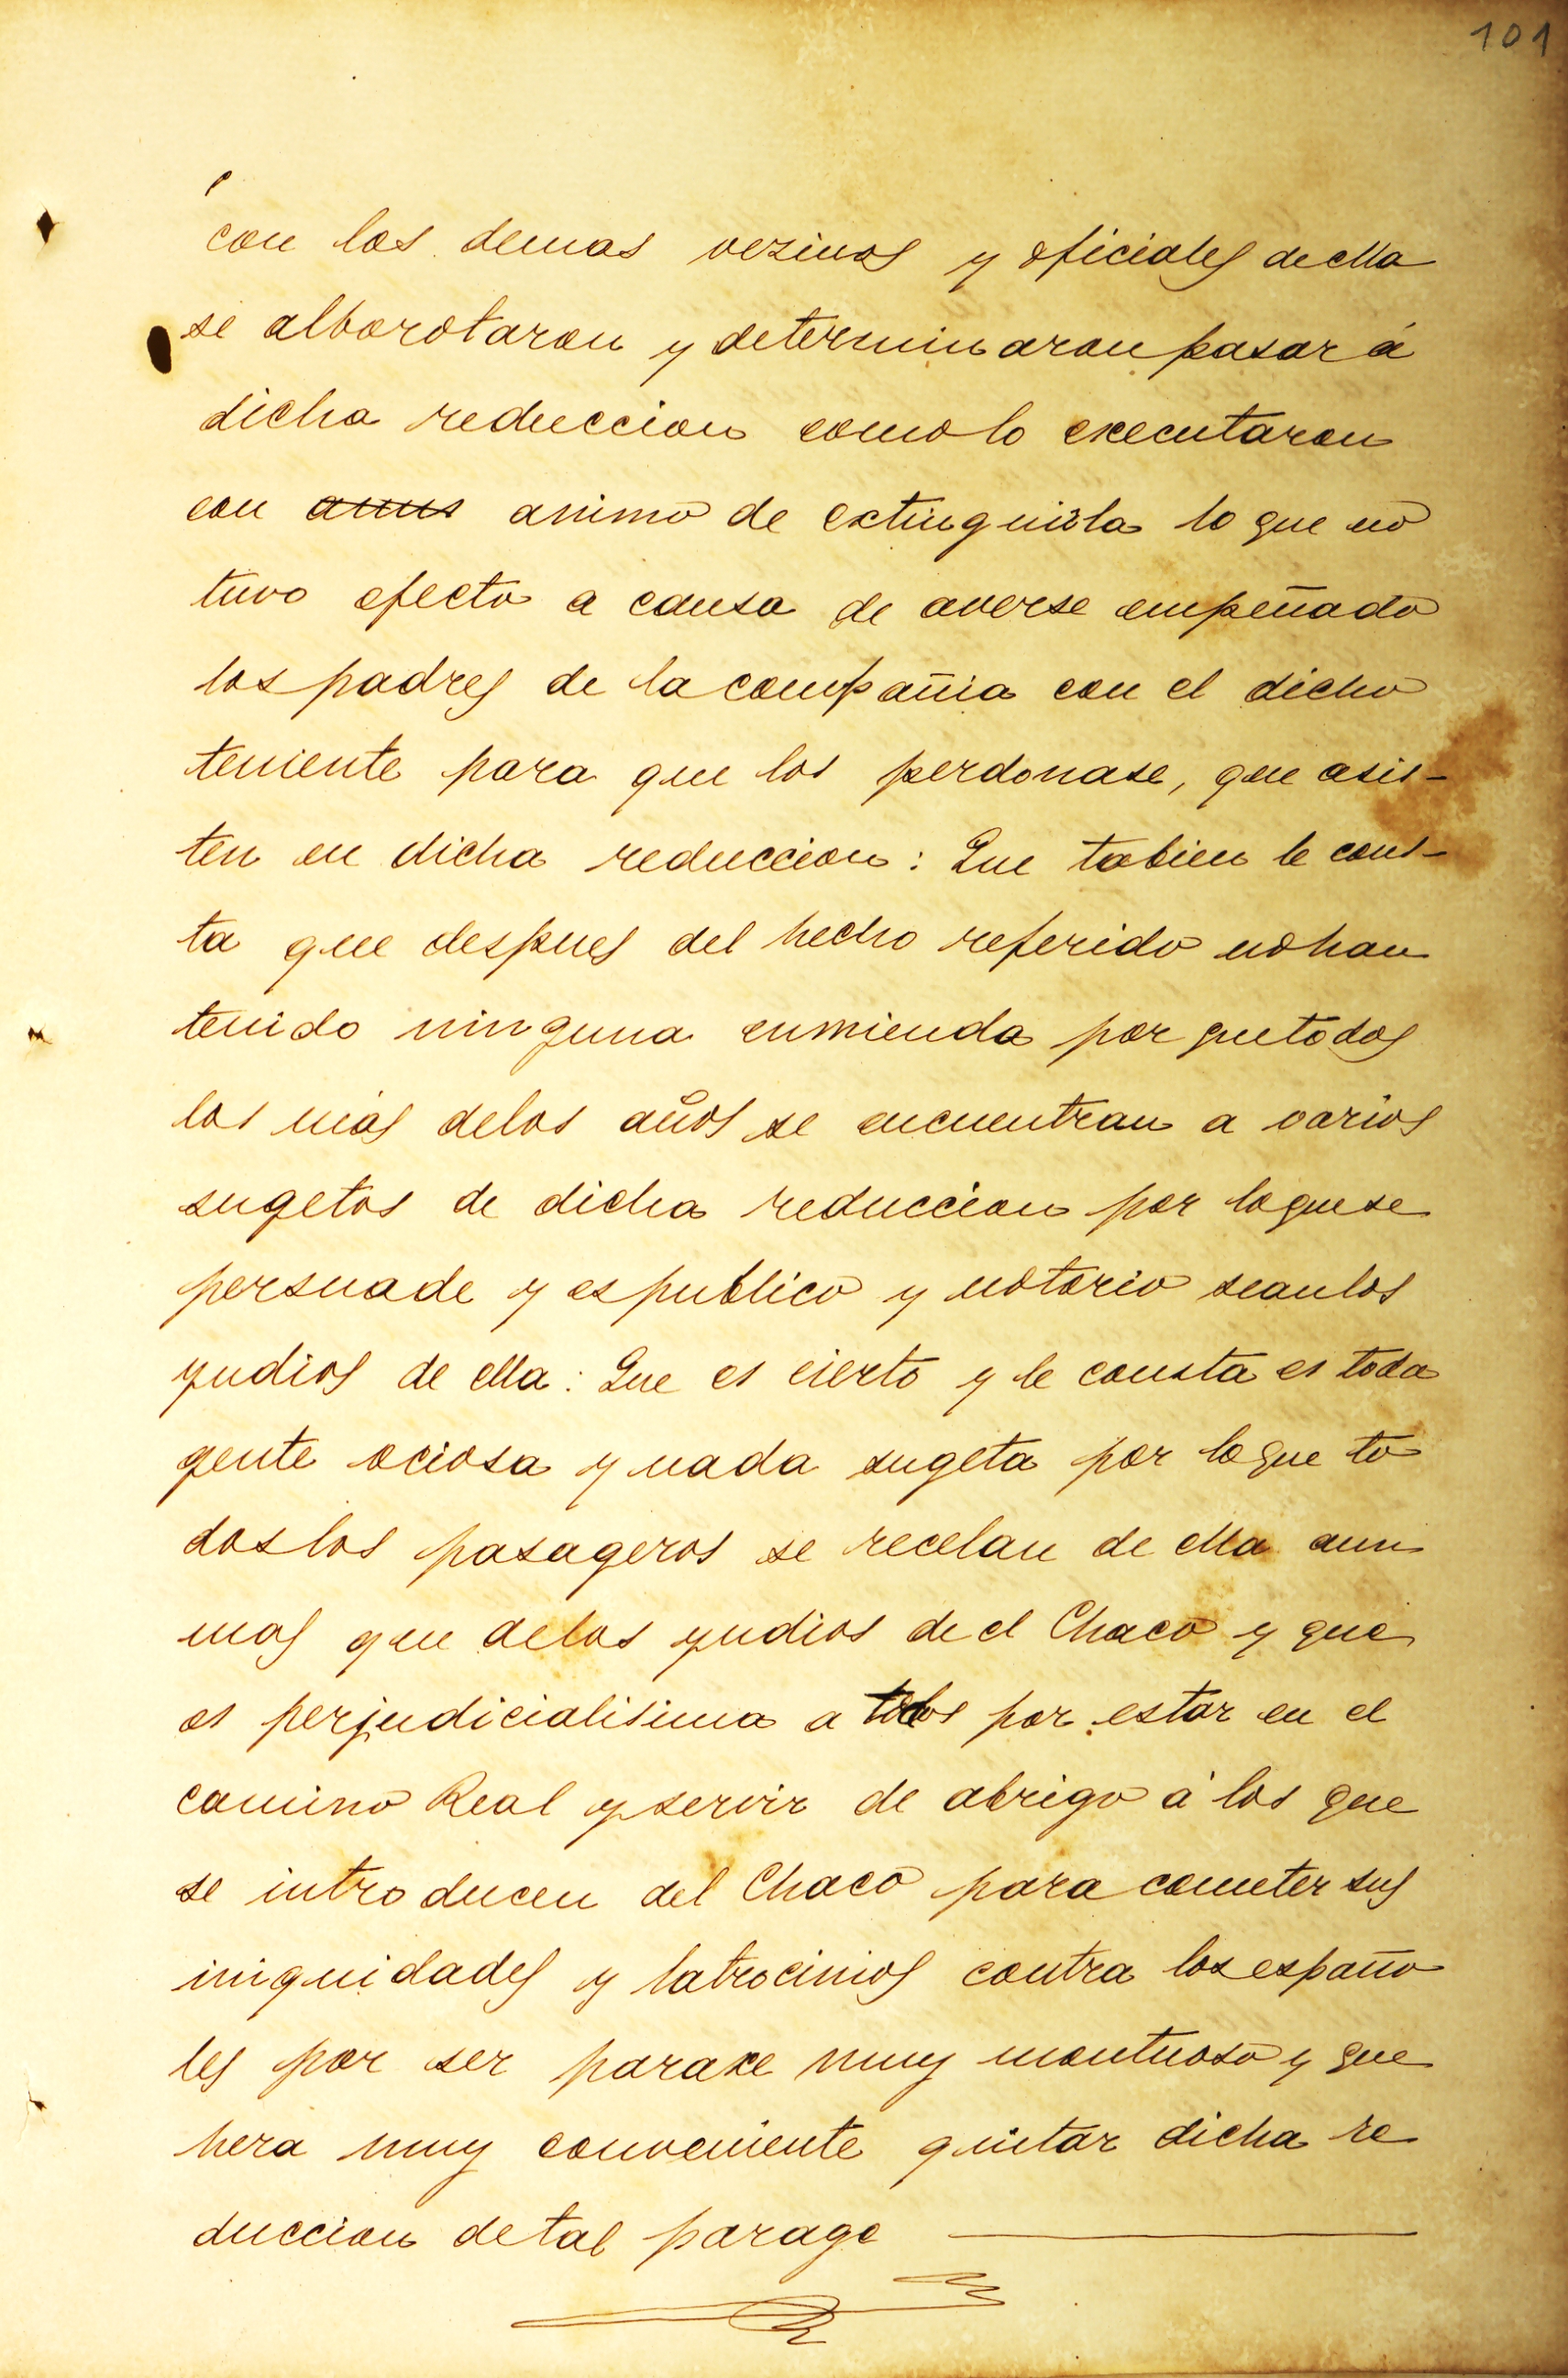 101
con los demas vezinos y oficiales de ella
se alborotaron y determinaron pasar á
dicha reduccion como lo executaron
con animo de extinguirla lo que no
tuvo efecto a causa de averse empeñado
los padres de la compañia con el dicho
teniente para que los perdonase, que asis-
ten en dicha reduccion: Que tabien le cons-
ta que despues del hecho referido no han
tenido ninguna enmienda por que todos
los más de los años se encuentran a varios
sugetos de dicha reduccion por lo que se
persuade y es publico y notorio sean los
yndios de ella: Que es cierto y le consta es toda
gente ociosa y nada sugeta por lo que to
dos los pasageros se recelan de ella aun
mas que de los yndios de el Chaco y que
es perjudicialisima a todos por estar en el
camino Real y servir de abrigo á los que
se introducen del Chaco para cometer sus
iniquidades y latrocinios contra los españo
les por ser paraxe muy montuoso y que
hera muy conveniente quitar dicha re
duccion de tal parage